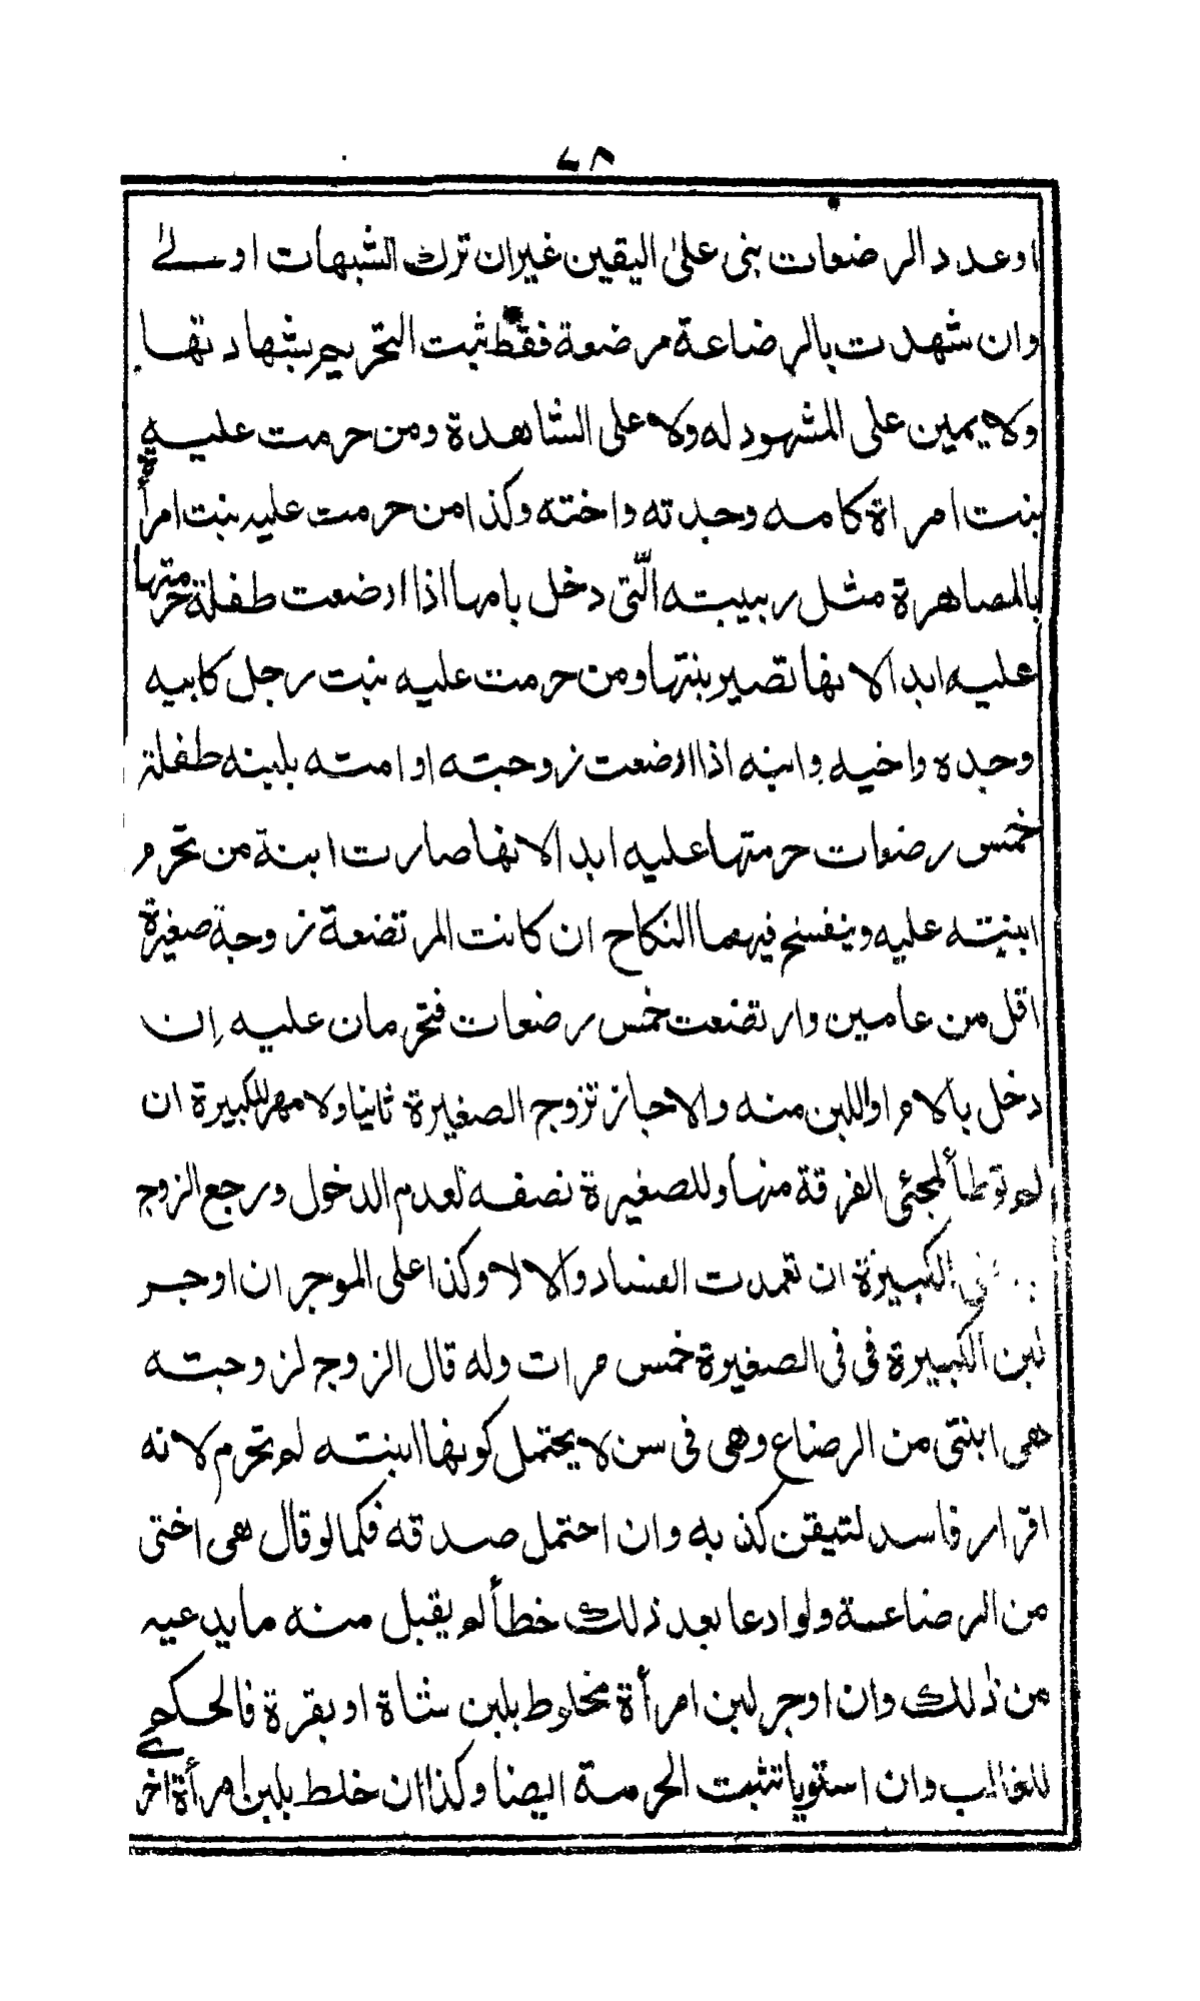 ٧٨
او عدد الرضعات بنى على اليقين غير ان ترك الشبهات اولے
وان شهدت بالرضاعة مرضعة فقط ثبت التحريم بشهادتها
ولا يمين على المشهود له ولا على الشاهدة ومن حرمت عليه
بنت امراة كامه وجدته واخته وكذا من حرمت عليه بنت امرأته
بالمصاهرة مثل ربيبته الّتى دخل بامها اذا ارضعت طفلة حرمتها
عليه ابدا لانها تصير بنتها ومن حرمت عليه بنت رجل كابيه
وجده واخيه وابنه اذا ارضعت زوجته او امته بلبنه طفلة
خمس رضعات حرمتها عليه ابدا لانها صارت ابنة من تحرم
ابنته عليه وينفسخ فيهما النكاح ان كانت المرتضعة زوجة صغيرة
اقل من عامين وارتضعت خمس رضعات فتحرمان عليه إن
دخل بالام او اللبن منه والا جاز تزوج الصغيرة ثانيا ولا مهر للكبيرة ان
لم توطأ لمجئى الفرقة منها وللصغيرة نصفه لعدم الدخول ورجع الزوج
الكبيرة ان تعمدت الفساد والا لا وكذا على الموجر ان اوجر
لبن الكبيرة فى فى الصغيرة خمس مرات وله قال الزوج لزوجته
هى ابنتى من الرضاع وهى فى سن لا يحتمل كونها ابنته لم تحرم لانه
اقرار فاسد لتيقن كذبه وان احتمل صدقه فكما لو قال هى اختى
من الرضاعة ولو ادعا بعد ذلك خطأ لم يقبل منه ما يدعيه
من ذلك وان اوجر لبن امرأة مخلوط بلبن شاة او بقرة فالحكم
للغالب وان استويا تثبت الحرمة ايضا وكذا ان خلط بلبن امرأة اخرے